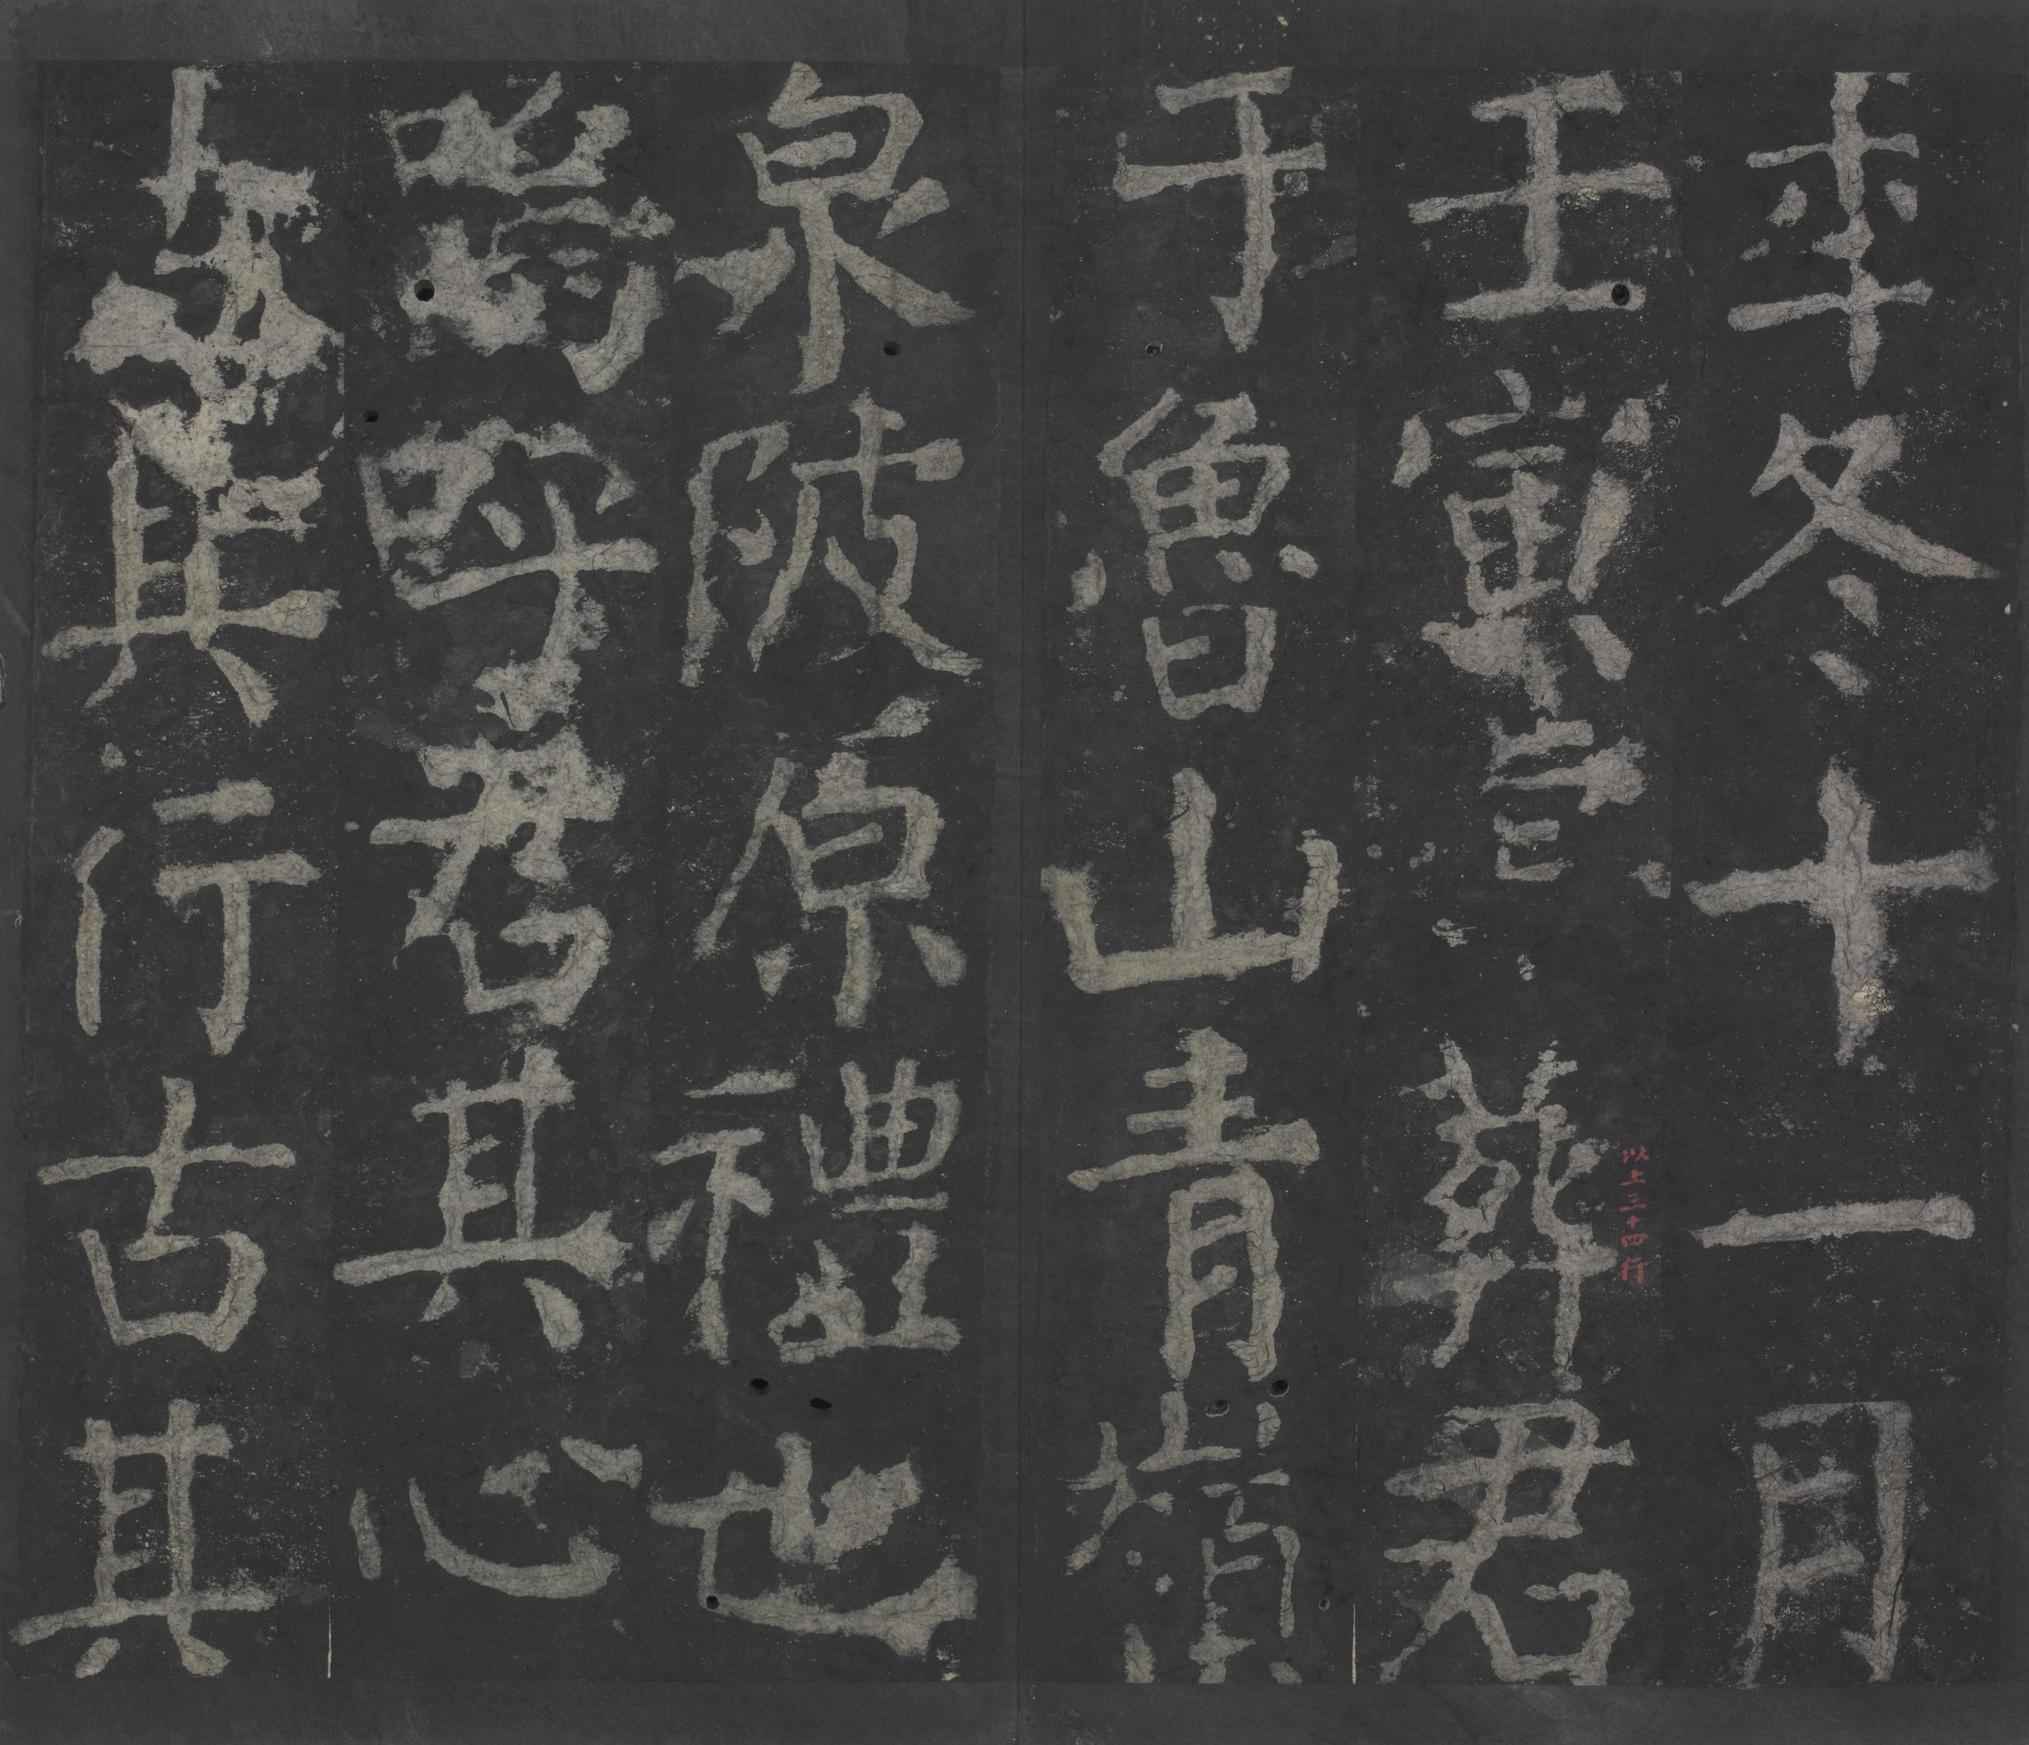 秊冬十一月
壬寅葬君
以上三十四行
于魯山青嶺
泉陂原禮也
嗚呼君其心
其行古其